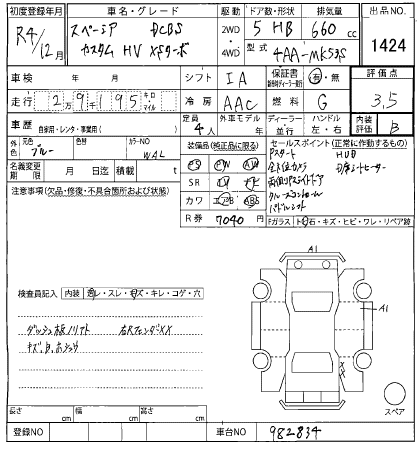 初度登録年月 車名・グレード 駆動 ドア数・形状 排気量 出品NO.
R4/12月 スペーシア DCBS 2WD 5 HB 660 cc
カスタム HV XSターボ 4WD 型式 4AA-MK53S 1424
車検 年 月 シフト IA 保証書 有・無 評価点
走行 2万9千195 キロ マイル 冷房 AAC 燃料 G 3.5
車歴 自家用・レンタ・事業用( ) 定員 4人 外車モデル 年 ディーラー 並行 ハンドル 左・右 内装評価 B
外色 元色 ブルー 色替 カラーNO WAL 装備品(純正品に限る) セールスポイント(正常に作動するもの)
名義変更期限 月 日迄 積載 t PS PW AW Pスタート HUD
注意事項(欠品・修復・不具合箇所および状態) SR 全方位カメラ 席シートヒーター
カワ エアB ABS 両側Pスライドドア
R券 7040円 クルーズコントロール
パドルシフト
Fガラス トビ石・キズ・ヒビ・ワレ・リペア跡
A1
検査員記入 内装 汚レ・スレ・キズ・キレ・コゲ・穴
A1
ダッシュ板ノリアト 右RフェンダXX
キズ、B、ホシュウ XX
スペア
長さ cm 幅 cm 高さ cm
登録NO 車台NO 982834